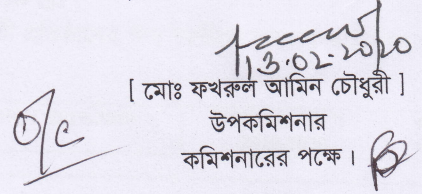 13.02.2020
[ মোঃ ফখরুল আমিন চৌধুরী ]
উপকমিশনার
কমিশনারের পক্ষে ।